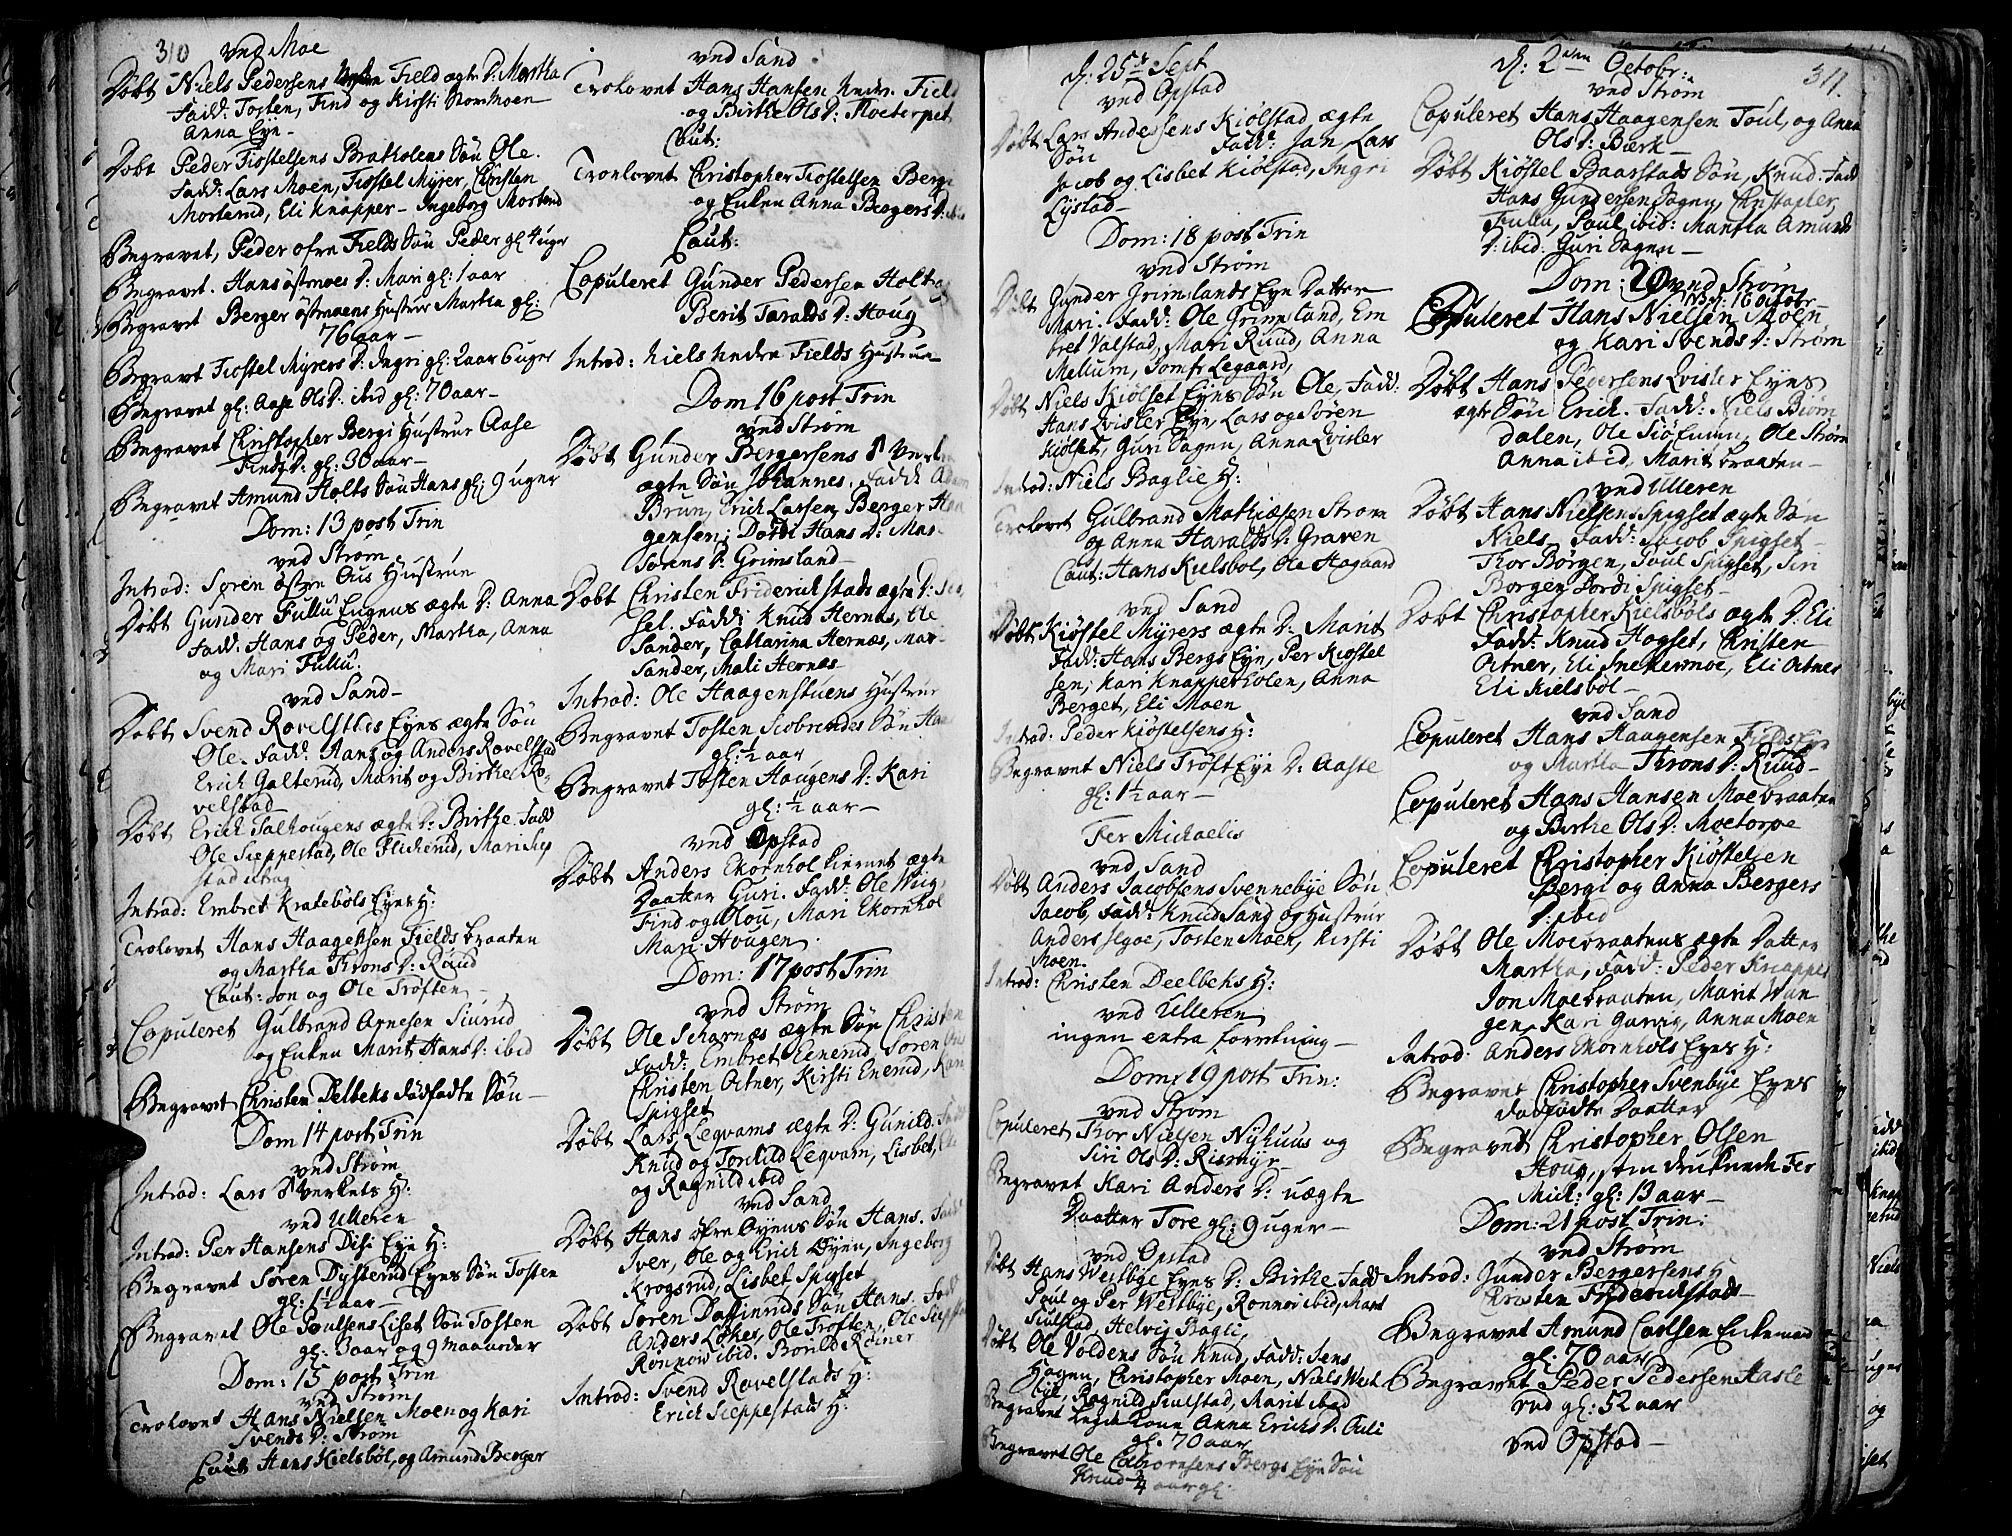 310
ved Moe
Døbt Niels Pedersens Field ægte D: Martha
Fadd: Tosten, Find og Kirsti Nordmoen
Anna Eye
Døbt Peder Kiostelsens Bratholens Søn Ole.
Fadd: Lars Moen, Kiostel Myrer, Christen
Morterud, Eli Knapper - Ingeborg Morterud
Begravet, Peder ofre Fields Søn Peder gl: 4 uger
Begravet. Hans østmoes D: Mari gl: 1 aar
Begravet Berger østmoens Hustrue Martha gl:
76 aar -
Begravet Kiostel Myrers D: Ingri gl: 2 aar 6 uger
Begravet gl: Aase Ols D: ibid gl: 70 aar -
Begravet Christopher Bergi Hustrue Aase
Finds D: gl: 30 aar -
Begravet Amund Holts Søn Hans gl: 9 uger
Dom: 13 post Trin
ved Strøm
Introd: Soren østre Ous Hustrue
Døbt Gunder Fullu Eyens ægte D: Anna
Fadd: Hans og Peder, Martha, Anna
og Mari Fullu.
ved Sand -
Døbt Svend Rovelstads Eyes ægte Søn
Ole. Fadd: Hans og Anders Rovelstad
Erich Galterud, Marit og Birthe Ro-
velstad -
Døbt Erich Talhougens ægte D: Birthe. Fadd
Ole Sieppestad, Ole Flicherud, Mari Siep
stad
Introd: Embret Kratebøls Eyes H:
Trolovet Hans Haagensen Fields braaten
og Martha Throns D: Ruud
Caut: Jon og Ole Trøften -
Copuleret Gulbrand Arnesen Siurud
og Enken Marit Hans D: ibid
Begravet Christen Delbeks dødfødte Søn -
Dom 14 post Trin
ved Strøm
Introd: Lars Øverkets H:
ved Ulleren
Introd: Per Hansens Disi Eye H:
Begravet Søren Dysterud Eyes Søn Tosten
gl: 1½ aar -
Begravet Ole Poulsens Liset Søn Tosten
gl: 3 aar og 9 maaneder
Dom: 15 post Trin
ved Strøm
Trolovet Hans Nielsen Moen og Kari
Svends D: Strøm
Caut Hans Kielsbøl, og Amund Berger
ved Sand
Trolovet Hans Hansen Nedre Field
og Birthe Ols D: Moeterpet
Caut:
Troelovet Christopher Kiostelsen Bergi
og Enken Anna Bergers D: ibid
Caut:
Copuleret Gunder Pedersen Holt
Berit Taralds D: Houg
Introd: Niels Nedre Fields Hustrue
Dom 16 post Trin
ved Strøm
Døbt Gunder Bergersens
ægte Søn Johannes. Fadd: Adam
Brun, Erich Larsen, Berger Haa
gensen, Dordi Hans D: Mar-
Sørens D: Grimsland -
Døbt Christen Friderichstads ægte D:
sel. Fadd: Knud Hernæs, Ole
Sander, Catharina Hernæs, Mar-
Sander, Mali Hernæs
Introd: Ole Haagenstuens Hustrue
Begravet Tosten Siobrendes Søn Hans
gl: ½ aar
Begravet Tosten Haugens D: Kari
gl: ½ aar -
ved Opstad
Døbt Anders Ekornhol ægte
Daatter Guri. Fadd: Ole Wiig,
Find og Olou, Mari Ekornhol
Mari Hougen.
Dom: 17 post Trin
ved Strøm
Døbt Ole Scharnæs ægte Søn Christen
Fadd: Embret Eenerud, Søren Ous
Christen Ortner, Kirsti Enerud, Kari
Spigset
Døbt Lars Legvams ægte D: Gunild. Fadd
Knud og Tonhild Legvam, Lisbet, Ole
og Ragnild ibid
ved Sand
Døbt Hans øfre Øyens Søn Hans. Fadd
Iver, Ole og Erich Øyen, Ingeborg
Krogsrud, Lisbet Spigset
Døbt Søren Daffinruds Søn Hans. Fadd
Anders Løken, Ole Trøften, Ole Siepp
Ronnow ibid. Boruld Roiner
Introd: Svend Rovelstads H:
Erich Sieppestads H:
d: 25de Sept
ved Opstad
Døbt Lars Andersens Kiølstad ægte
Søn Fadd: Jan Lars
Jacob og Lisbet Kiølstad, Ingri
Lystad -
Dom: 18 post Trin
ved Strøm
Døbt Gunder Grimslands Eye Datter
Mari. Fadd: Ole Grimsland, Em
bret Valstad, Mari Ruud, Anna
Mellum, Jomfr Legaard,
Døbt Niels Kiølset Eyes Søn Ole, Fadd:
Hans Qvisler Eye, Lars og Søren
Kiølset, Guri Sagen, Anna Qvisler
Introd: Niels Baglie H:
Trolovet Gulbrand Mathiæsen Strøm
og Anna Haralds D: Graven
Caut: Hans Kielsbøl, Ole Aagaard
ved Sand
Døbt Kiøstel Myrers ægte D: Marit
Fadd: Hans Bergs Eye, Per Kiøstel
sen, Kari Knapperholen, Anna
Berget, Eli Moen
Introd: Peder Kiøstelsens H:
Begravet Niels Trøft Eye D: Aaste
gl: 1½ aar -
Fer Michaelis
ved Sand
Døbt Anders Jacobsens Svennebye Søn
Jacob, Fadd: Knud Sand og Hustrue
Anders Segoe, Tosten Moen, Kirsti
Moen.
Introd: Christen Deelbeks H:
ved Ulleren
ingen extra forretning -
Dom: 19 post Trin:
ved Strøm
Copuleret Thor Nielsen Nyhuus og
Siri Ols D: Rismyr
Begravet Kari Anders D: uægte
Daatter Tore gl: 9 uger -
ved Opstad
Døbt Hans Westbye Eyes D: Birthe Fadd
Poul og Per Westbye, Ronnow ibid, Marit
Siulstad, Helvig Bagli,
Døbt Ole Voldens Søn Knud, Fadd: Jens
Hagen, Christopher Moen, Niels West
bye, Ragnild Siulstad, Marit ibid
Begravet Anna Erichs D: Auli
gl: 70 aar
Begravet Ole Bergs Eye Søn
Knud ¾ aar gl:
311.
d: 2den Octobr:
ved Strøm
Copuleret Hans Haagensen Foul, og Anna
Ols D: Bærk -
Døbt Kiøstel Baarstads Søn, Knud. Fadd
Hans Gundersen Sagen, Christopher
Fullu, Poul ibid: Martha Amunds
D: ibid. Guri Sagen -
Dom: 20 ved Strøm
NB: d: 16 Octobr -
Copuleret Hans Nielsen Moen
og Kari Svends D: Strøm
Døbt Hans Pedersens Qvisler Eyes
ægte Søn Erich. Fadd: Niels Biørn
dalen, Ole Siøenun, Ole Strøm
Anna ibid, Marit braaten -
ved Ulleren
Døbt Hans Nielsens Spigset ægte Søn
Niels. Fadd: Jacob Spigset -
Thor Børgen, Poul Spigset, Siri
Borgen, Dordi Spigset -
Døbt Christopher Kielsbøls ægte D: Eli
Fadd: Knud Hogset, Christen
Ortner, Eli Snekermoe, Eli Ortner
Eli Kielsbøl -
ved Sand
Copuleret Hans Haagensen Fields Eye
og Martha Throns D: Ruud -
Copuleret Hans Hansen Moebraaten
og Birthe Ols D: Moetorpe
Copuleret Christopher Kiøstelsen
Bergi og Anna Bergers
D: ibid
Døbt Ole Moebraatens ægte Datter
Martha, Fadd: Peder Knapper
Jon Moebraaten, Marit Wan
gen, Kari Garvig, Anna Moen
Introd: Anders Ekornhols Eyes H:
Begravet Christopher Svenbye Eyes
dødfødte Daatter
Begravet Christopher Olsen
Houg, som druknede Fer
Mich: gl: 13 aar -
Dom: 21 post Trin:
ved Strøm
Introd: Gunder Bergersens H
Christen Friderichstads
Begravet Amund Carlsen Enkemand
gl: 70 aar
Begravet Peder Pedersen Hasle
ved gl: 52 aar
ved Opstad -